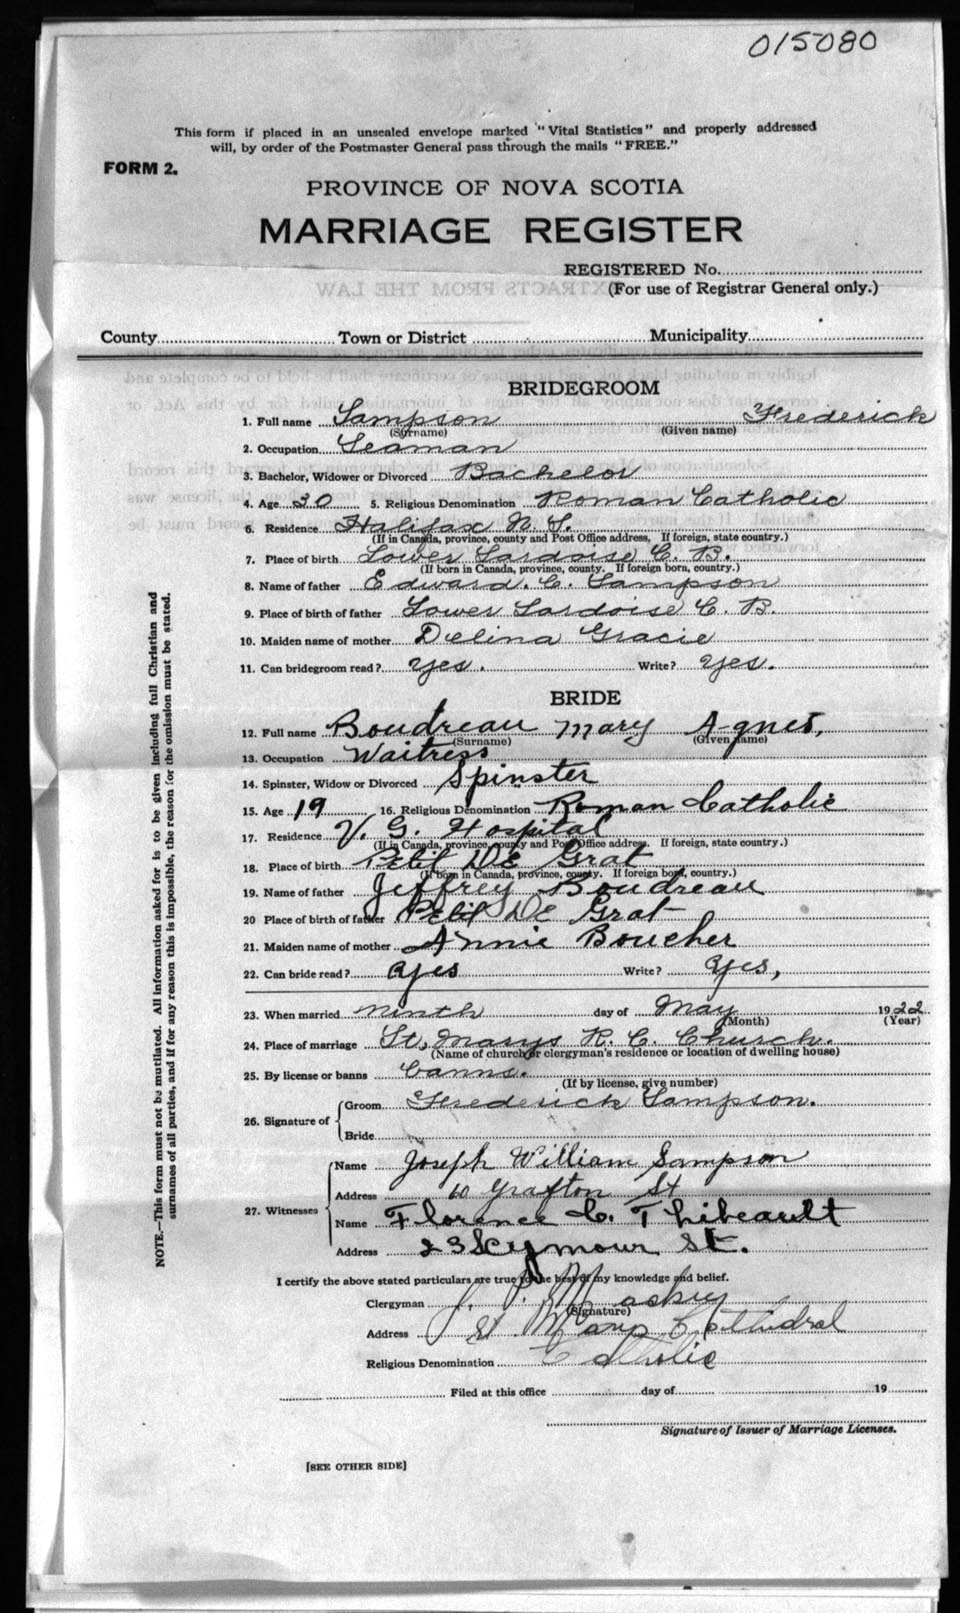 015080
This form if placed in an unsealed envelope marked "Vital Statistics" and properly addressed
will, by order of the Postmaster General pass through the mails "FREE."
FORM 2.
PROVINCE OF NOVA SCOTIA
MARRIAGE REGISTER
REGISTERED No.
(For use of Registrar General only.)
County Town or District Municipality
BRIDEGROOM
1. Full name Sampson Frederick
(Surname) (Given name)
2. Occupation Seaman
3. Bachelor, Widower or Divorced Bachelor
4. Age 30 5. Religious Denomination Roman Catholic
6. Residence Halifax N. S.
(If in Canada, province, county and Post Office address, If foreign, state country.)
7. Place of birth Lower Lardoise C. B.
(If born in Canada, province, county. If foreign born, country.)
8. Name of father Edward. C. Sampson
9. Place of birth of father Lower Lardoise C. B.
10. Maiden name of mother Delina Gracie
11. Can bridegroom read? yes. Write? yes.
BRIDE
12. Full name Boudreau Mary Agnes,
(Surname) (Given name)
13. Occupation Waitress
14. Spinster, Widow or Divorced Spinster
15. Age 19 16. Religious Denomination Roman Catholic
17. Residence V. G. Hospital
(If in Canada, province, county and Post Office address. If foreign, state country.)
18. Place of birth Petit DE Grat
(If born in Canada, province, county. If foreign born, country.)
19. Name of father Jeffrey Boudreau
20 Place of birth of father Petit DE Grat
21. Maiden name of mother Annie Boucher
22. Can bride read? yes Write? yes,
23. When married ninth day of May 1922
(Month) (Year)
24. Place of marriage St, Marys R. C. Church.
(Name of church or clergyman's residence or location of dwelling house)
25. By license or banns banns.
(If by license, give number)
26. Signature of Groom Frederick Sampson.
Bride
27. Witnesses Name Joseph William Sampson
Address 60 Grafton St
Name Florence C. Thibeault
Address 23 Seymour St.
I certify the above stated particulars are true to the best of my knowledge and belief.
Clergyman J. P.
(Signature)
Address St Marys Cathedral
Religious Denomination Catholic
Filed at this office day of 19
Signature of Issuer of Marriage Licenses.
[SEE OTHER SIDE]
NOTE.—This form must not be mutilated. All information asked for is to be given including full Christian and
surnames of all parties, and if for any reason this is impossible, the reason for the omission must be stated.